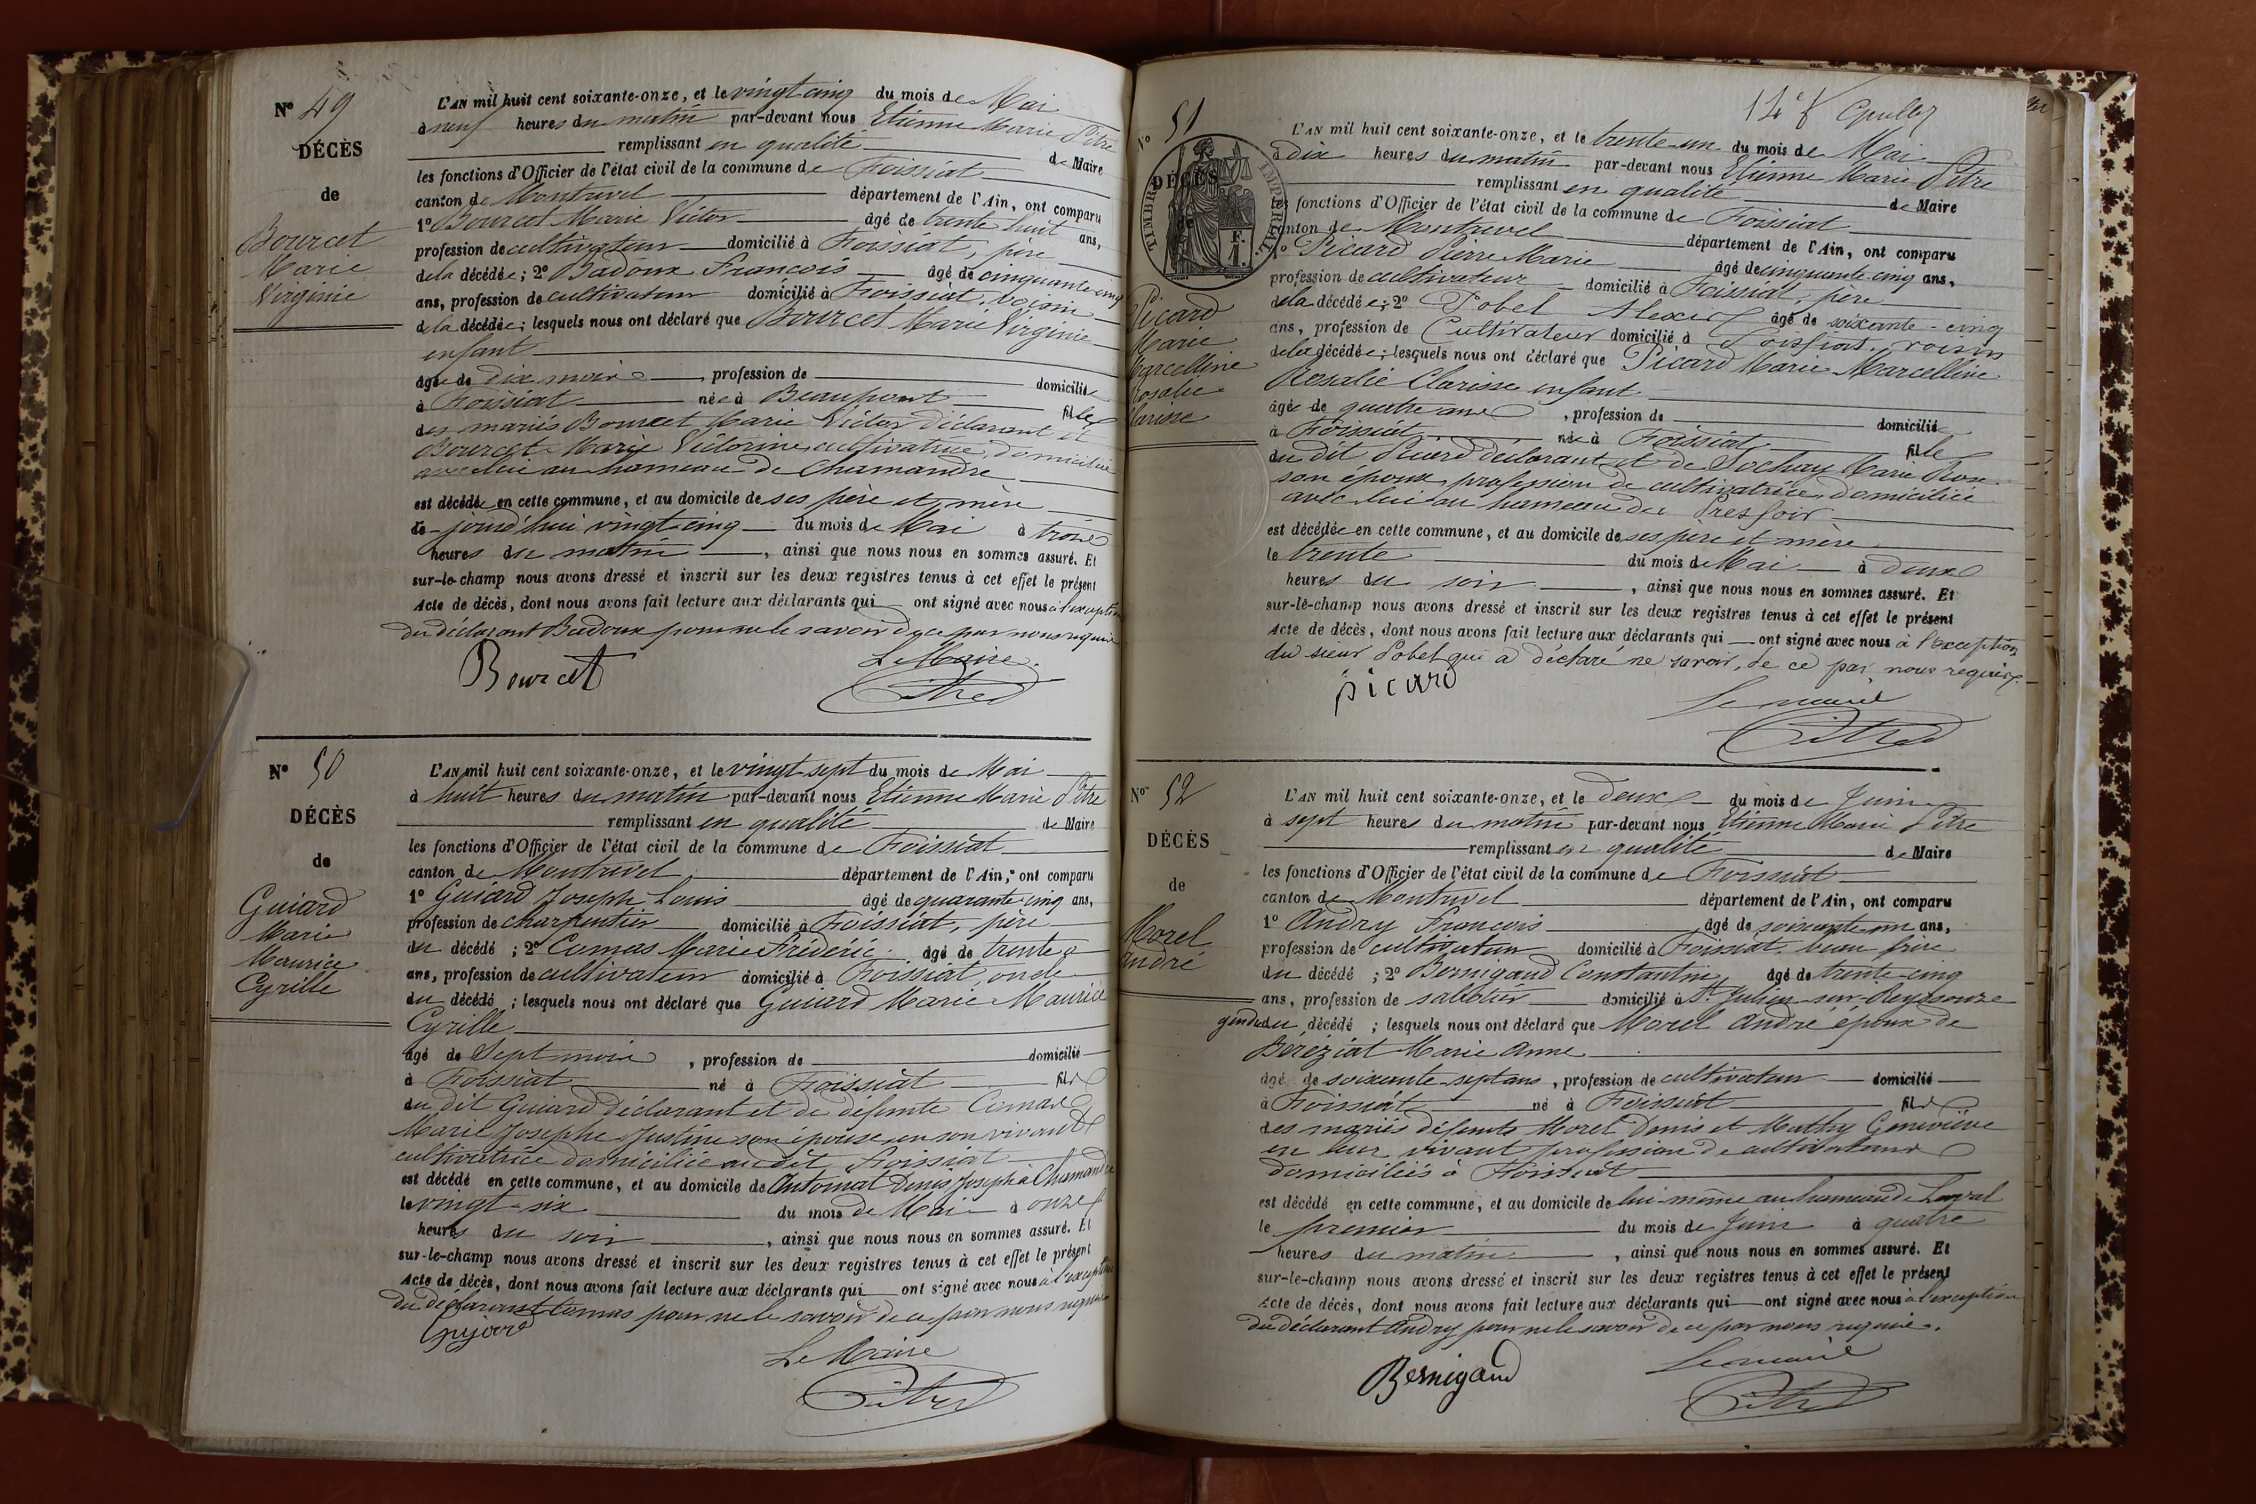 Nº 49
DÉCÈS
de
Bourcet
Marie
Virginie
L'AN mil huit cent soixante-onze, et le vingt cinq du mois de Mai
à neuf heures du matin par-devant nous Etienne Marie Pitre
remplissant en qualité de Maire
les fonctions d'Officier de l'état civil de la commune de Foissiat
canton de Montrevel département de l'Ain, ont comparu
1º Bourcet Marie Victor âgé de trente huit ans,
profession de cultivateur domicilié à Foissiat, père
de la décédée; 2º Badoux François âgé de cinquante cinq
ans, profession de cultivateur domicilié à Foissiat, voisin
de la décédée; lesquels nous ont déclaré que Bourcet Marie Virginie
enfant
âgée de dix mois, profession de domiciliée
à Foissiat née à Beaupont fille
des mariés Bourcet Marie Victor déclarant et
Bourcet Marie Victorine cultivatrice domiciliée
avec lui au hameau de Chamandre
est décédée en cette commune, et au domicile de ses père et mère
le jourd'hui vingt-cinq du mois de Mai à trois
heures de matin, ainsi que nous nous en sommes assuré. Et
sur-le-champ nous avons dressé et inscrit sur les deux registres tenus à cet effet le présent
Acte de décès, dont nous avons fait lecture aux déclarants qui ont signé avec nous à l'exception
du déclarant Badoux pour ne le savoir de ce par nous requis
Bourcet
Le Maire
Pitre
Nº 50
DÉCÈS
de
Guiard
Marie
Maurice
Cyrille
L'AN mil huit cent soixante-onze, et le vingt-sept du mois de Mai
à huit heures du matin par-devant nous Etienne Marie Pitre
remplissant en qualité de Maire
les fonctions d'Officier de l'état civil de la commune de Foissiat
canton de Montrevel département de l'Ain, ont comparu
1º Guiard Joseph Louis âgé de quarante-cinq ans,
profession de charpentier domicilié à Foissiat, père
du décédé; 2º Comas Marie Frédéric âgé de trente
ans, profession de cultivateur domicilié à Foissiat, oncle
du décédé; lesquels nous ont déclaré que Guiard Marie Maurice
Cyrille
âgé de Sept mois, profession de domicilié
à Foissiat né à Foissiat fils
du dit Guiard déclarant et de défunte Comas
Marie Josephe Justine son épouse en son vivant
cultivatrice domiciliée au dit Foissiat
est décédé en cette commune, et au domicile de Antoinat Denis Joseph à Chamandre
le vingt-six du mois de Mai à onze
heures du soir, ainsi que nous nous en sommes assuré. Et
sur-le-champ nous avons dressé et inscrit sur les deux registres tenus à cet effet le présent
Acte de décès, dont nous avons fait lecture aux déclarants qui ont signé avec nous à l'exception
du déclarant Comas pour ne le savoir de ce par nous requis
Gujard
Le Maire
Pitre
14e f
Nº 51
TIMBRE IMPERIAL
F.
1.
DÉCÈS
de
Picard
Marie
Marcelline
Rosalie
Clarisse
L'AN mil huit cent soixante-onze, et le trente-un du mois de Mai
à dix heures du matin par-devant nous Etienne Marie Pitre
remplissant en qualité de Maire
les fonctions d'Officier de l'état civil de la commune de Foissiat
canton de Montrevel département de l'Ain, ont comparu
1º Picard Pierre Marie âgé de cinquante-cinq ans,
profession de cultivateur domicilié à Foissiat, père
de la décédée; 2º Pobel Alexis âgé de soixante-cinq
ans, profession de Cultivateur domicilié à Foissiat, voisin
de la décédée; lesquels nous ont déclaré que Picard Marie Marcelline
Rosalie Clarisse enfant
âgée de quatre ans, profession de domiciliée
à Foissiat née à Foissiat fille
du dit Picard déclarant et de Sochay Marie Rose
son épouse profession de cultivatrice, domiciliée
avec lui au hameau du Pressoir
est décédée en cette commune, et au domicile de ses père et mère
le trente du mois de Mai à deux
heures du soir, ainsi que nous nous en sommes assuré. Et
sur-le-champ nous avons dressé et inscrit sur les deux registres tenus à cet effet le présent
Acte de décès, dont nous avons fait lecture aux déclarants qui ont signé avec nous à l'exception
du sieur Pobel qui a déclaré ne savoir, de ce par nous requis.
picard
Le maire
Pitre
Nº 52
DÉCÈS
de
Morel
André
L'AN mil huit cent soixante-onze, et le deux du mois de Juin
à sept heures du matin par-devant nous Etienne Marie Pitre
remplissant en qualité de Maire
les fonctions d'Officier de l'état civil de la commune de Foissiat
canton de Montrevel département de l'Ain, ont comparu
1º Andry François âgé de soixante un ans,
profession de cultivateur domicilié à Foissiat, beau frère
du décédé; 2º Bernigaud Constantin âgé de trente-cinq
ans, profession de sabotier domicilié à St Julien-sur-Reyssouze
gendre du décédé; lesquels nous ont déclaré que Morel André époux de
Béréziat Marie Anne
âgé de soixante-sept ans, profession de cultivateur domicilié
à Foissiat né à Foissiat fils
des mariés défunts Morel Denis et Mathy Geneviève
en leur vivant profession de cultivateurs
domiciliés à Foissiat
est décédé en cette commune, et au domicile de lui-même au hameau de Laval
le premier du mois de Juin à quatre
heures du matin, ainsi que nous nous en sommes assuré. Et
sur-le-champ nous avons dressé et inscrit sur les deux registres tenus à cet effet le présent
Acte de décès, dont nous avons fait lecture aux déclarants qui ont signé avec nous à l'exception
du déclarant Andry pour ne le savoir de ce par nous requis.
Bernigaud
Le maire
Pitre